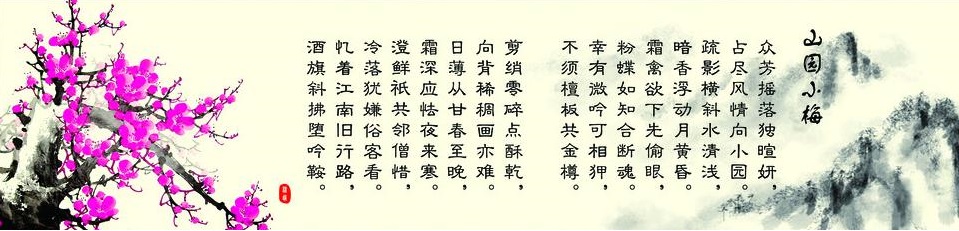 山园小梅
众芳摇落独暄妍，
占尽风情向小园。
疏影横斜水清浅，
暗香浮动月黄昏。
霜禽欲下先偷眼，
粉蝶如知合断魂。
幸有微吟可相狎，
不须檀板共金樽。
剪绡零碎点酥乾，
向背稀稠画亦难。
日薄从甘春至晚，
霜深应怯夜来寒。
澄鲜祇共邻僧惜，
冷落犹嫌俗客看。
忆着江南旧行路，
酒旗斜拂堕吟鞍。